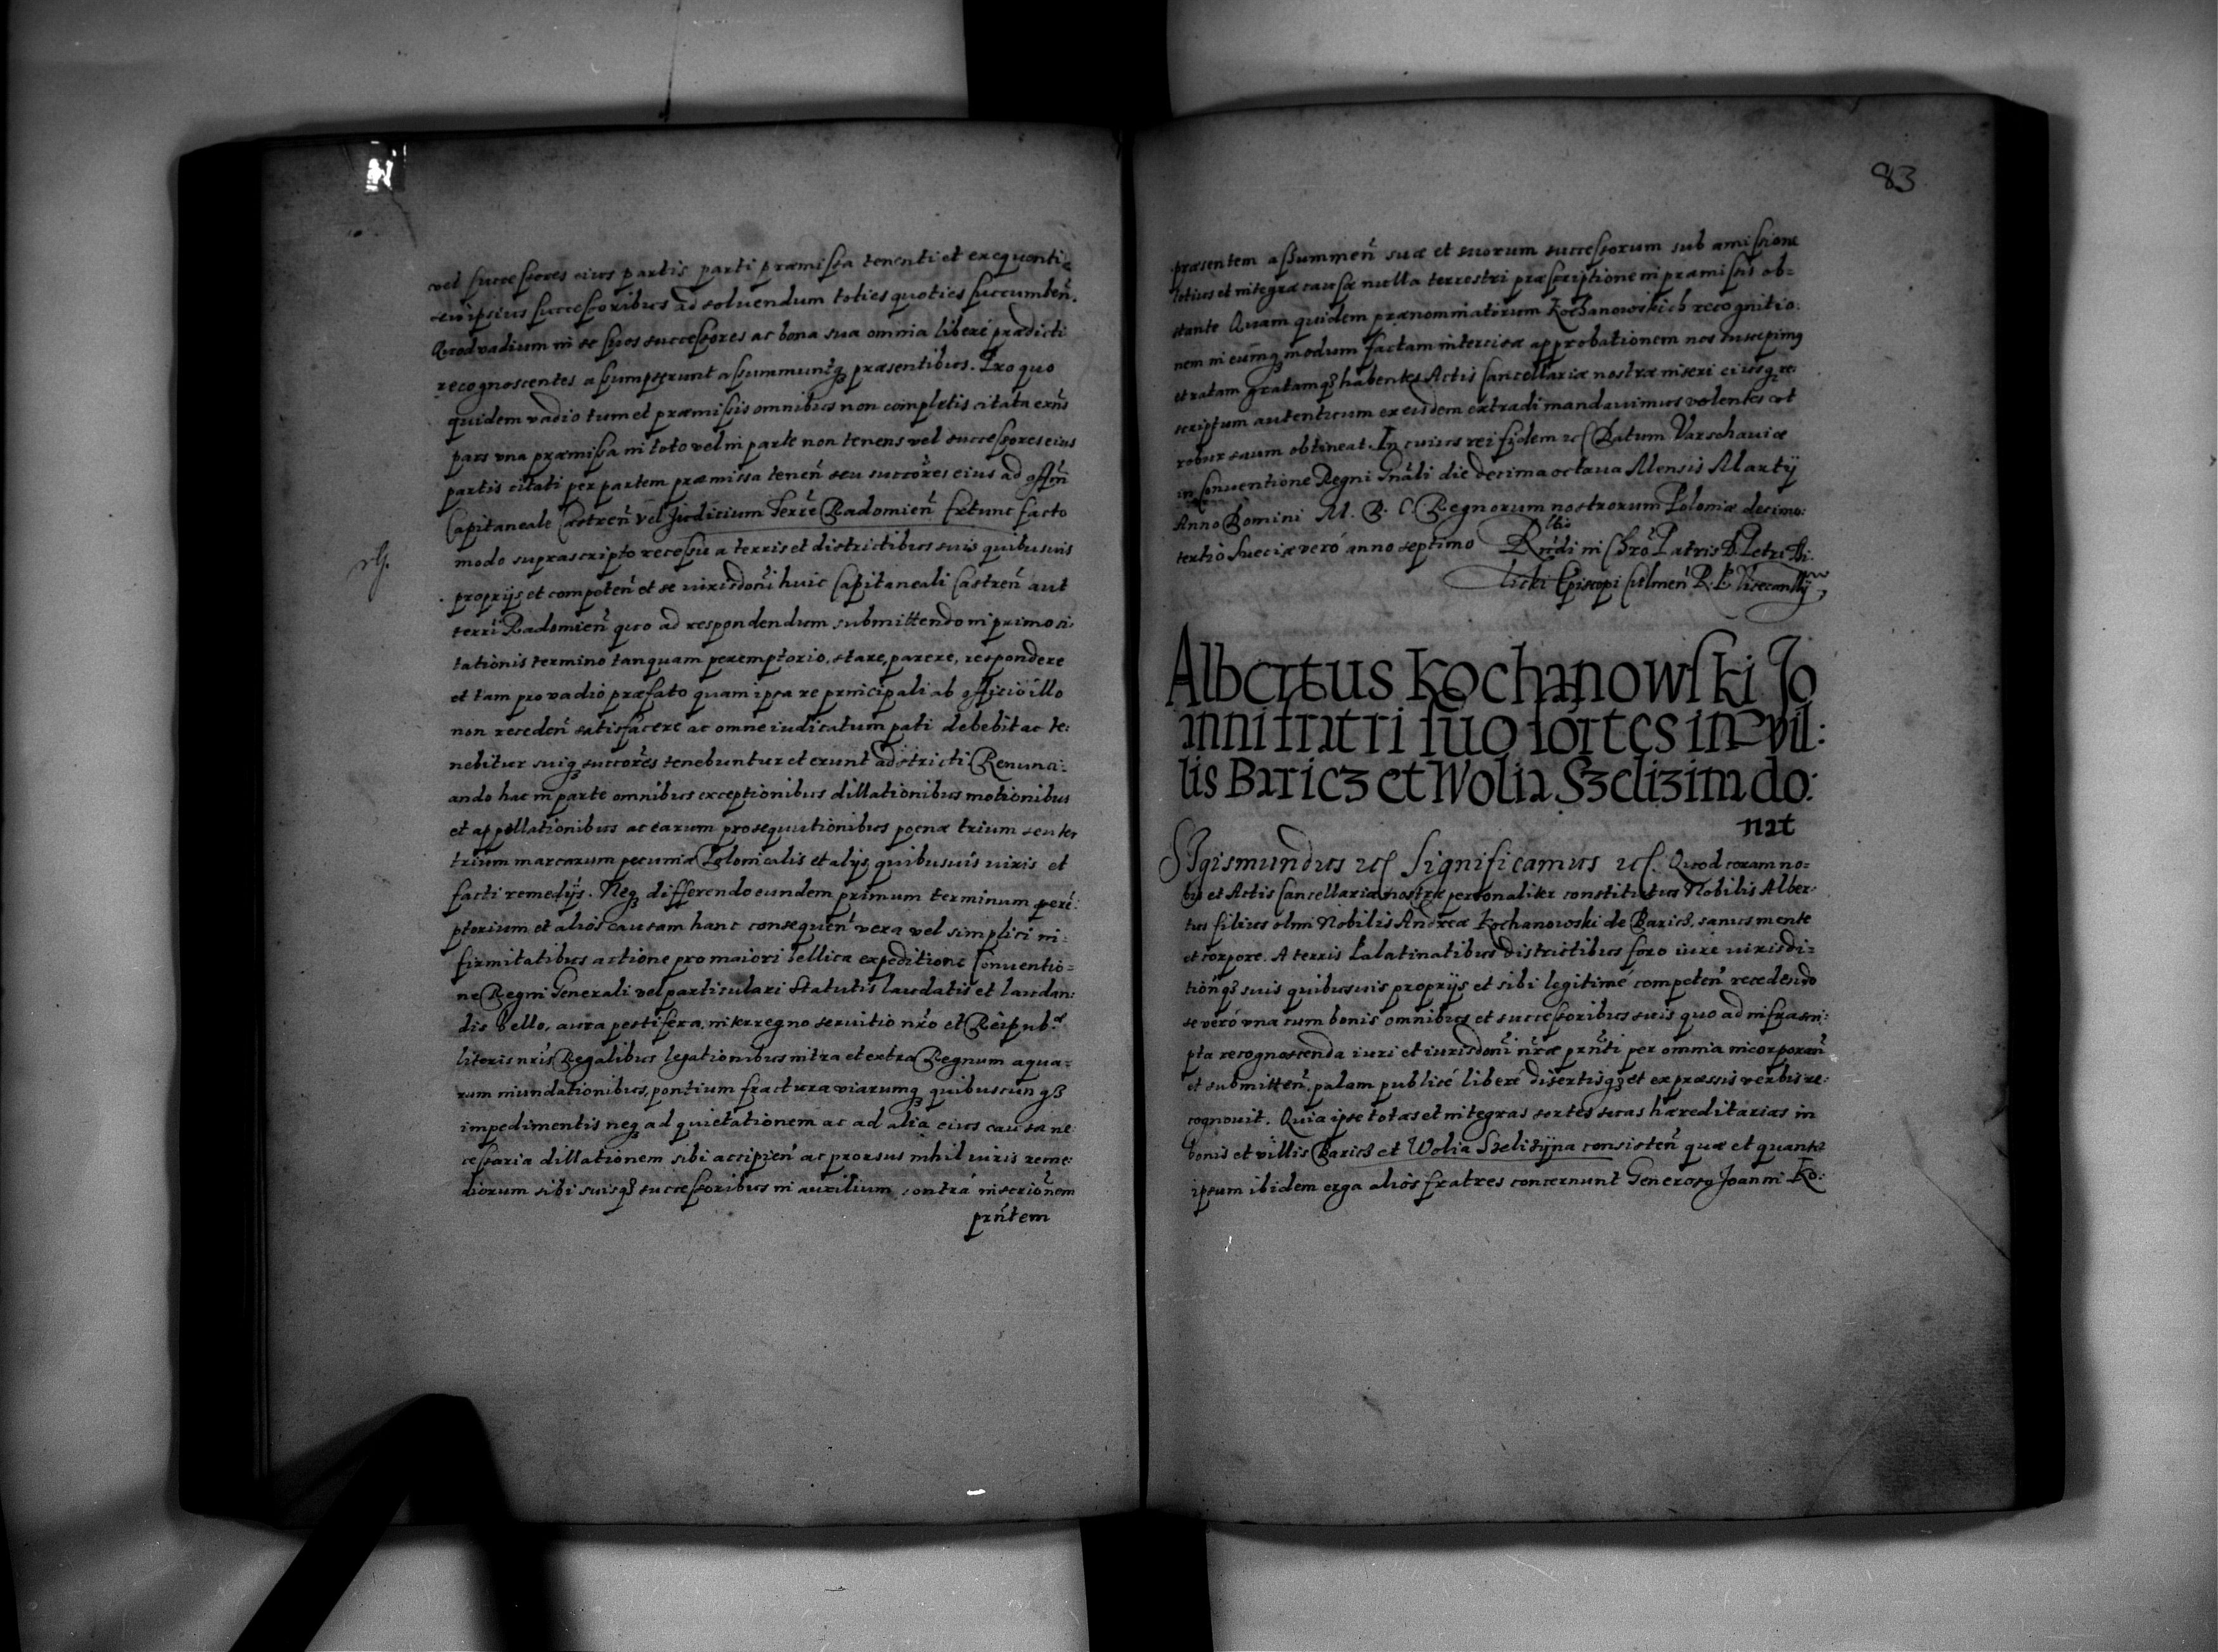 vel successores eius partis parti præmissa tenenti et exequenti
seu ipsius successoribus ad soluendum toties quoties succumbeñ.
Quod vadium in se suos successores ac bona sua omnia liberè prædicti
recognoscentes assumpserunt assummuntq præsentibus. Pro quo
quidem vadio tum et præmissis omnibus non completis citata exñs
pars vna præmissa in toto vel in parte non tenens vel successores eius
partis citati per partem præmissa teneñ seu succores eius ad offm̃
Capitaneale Castreñ vel Judicium Terre Radomieñ Extunc facto
modo suprascripto recessu a terris et districtibus suis quibusuis
proprijs et competeñ et se iurisdoni huic Capitaneali Castreñ aut
terri Radomieñ quo ad respondendum submittendo in primo ci:
tationis termino tanquam peremptorio, stare, parere, respondere
et tam pro vadio præfato quam ipsa re principali ab officio illo
non recedeñ satisfacere ac omne iudicatum pati debebit ac te:
nebitur suiq succores tenebuntur et erunt adstricti Renunci:
ando hac in parte omnibus exceptionibus dillationibus motionibus
et appellationibus ac earum prosequutionibus poenæ trium seu ter
trium marcarum pecuniæ Polonicalis et alijs quibusuis iuris et
facti remedijs. Neq differendo eundem primum terminum pere:
ptorium et aliòs causam hanc consequeñ vera vel simplici in:
firmitatibus actione pro maiori bellica expeditione Conuentio=
ne Regni Generali vel particulari Statutis laudatis et laudan:
dis bello, aura pestifera, interregno seruitio nro et Reipub.
literis nris Regalibus legationibus intra et extra Regnum aqua=
rum inundationibus, pontium fractura viarumq quibuscunq
impedimentis neq ad quietationem ac ad alia eius causa ne:
cessaria dillationem sibi accipieñ ac prorsus nihil iuris reme:
diorum sibi suisq successoribus in auxilium contra inscrionem
prñtem
83
præsentem assummeñ suæ et suorum successorum sub amissione
totius et integræ causæ nulla terrestri præscriptione in præmissis ob=
stante Quam quidem prænominatorum Kochanowskich recognitio:
nem in eumq modum factam intercisæ approbationem nos suscepimq
et ratam gratamq habentes Actis Cancellariæ nostræ inseri eiusq re:
scriptum autenticum ex eisdem extradi mandauimus volentes vt
robur suum obtineat. In cuius rei fidem Datum Varschauiæ
in Conuentione Regni Gnali die decima octaua Mensis Martij
Anno Domini M. D. C. Regnorum nostrorum Poloniæ decimo:
tertio Sueciæ verò anno septimo Rndi in Chro Patris D. Petri Ti:
licki Episcopi Culmeñ R. P. Vicecanllrij
Albertus Kochanowski Jo
anni fratri suo sortes in vil:
lis Baricz et Wolia Szelizina do:
nat
Sigismundus Significamus Quod coram no=
bis et Actis Cancellariæ nostræ personaliter constitutus Nobilis Alber:
tus filius olim Nobilis Andreæ Kochanowski de Baricz, sanus mente
et corpore. A terris Palatinatibus districtibus foro iure iurisdi=
tionq suis quibusuis proprijs et sibi legitimè competeñ recedendo
se verò vna cum bonis omnibus et successoribus suis quo ad infrascri:
pta recognoscenda iuri et iurisdoni nræ prñti per omnia incorporañ
et submitteñ, palam publicè liberè disertisq et expræssis verbis re:
cognouit. Quia ipse totas et integras sortes suas hæreditarias in
bonis et villis Baricz et Wolia Szelizijna consisteñ quæ et quantæ
ipsum ibidem erga aliòs fratres concernunt Generoso Joanni Ko: